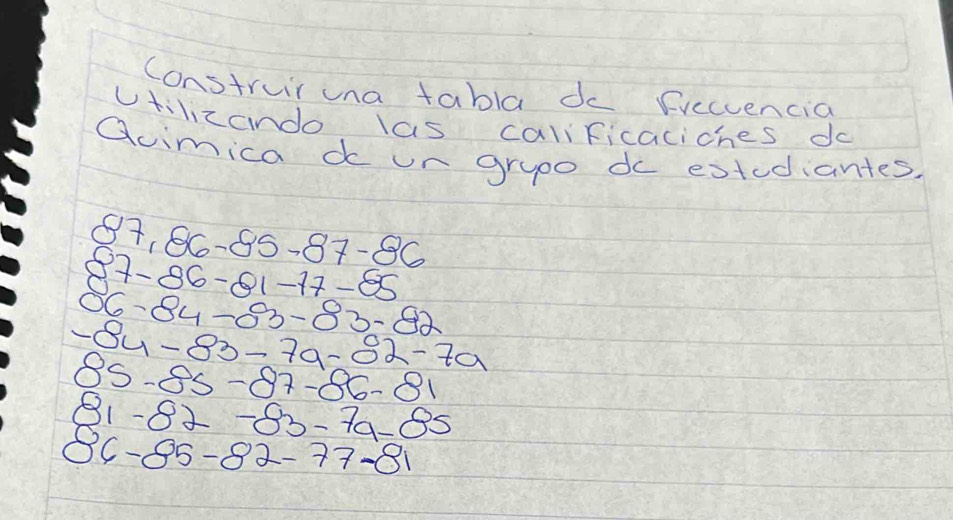 Construir una tabla de frecuencia
utilizando las calificaciones de
Química de un grupo de estudiantes.
87, 86-85-87-86
87-86-81-77-85
86-84-83-83-82
-84-83-79-82-79
85-85-87-86-81
81-82-83-79-85
86-85-82-77-81